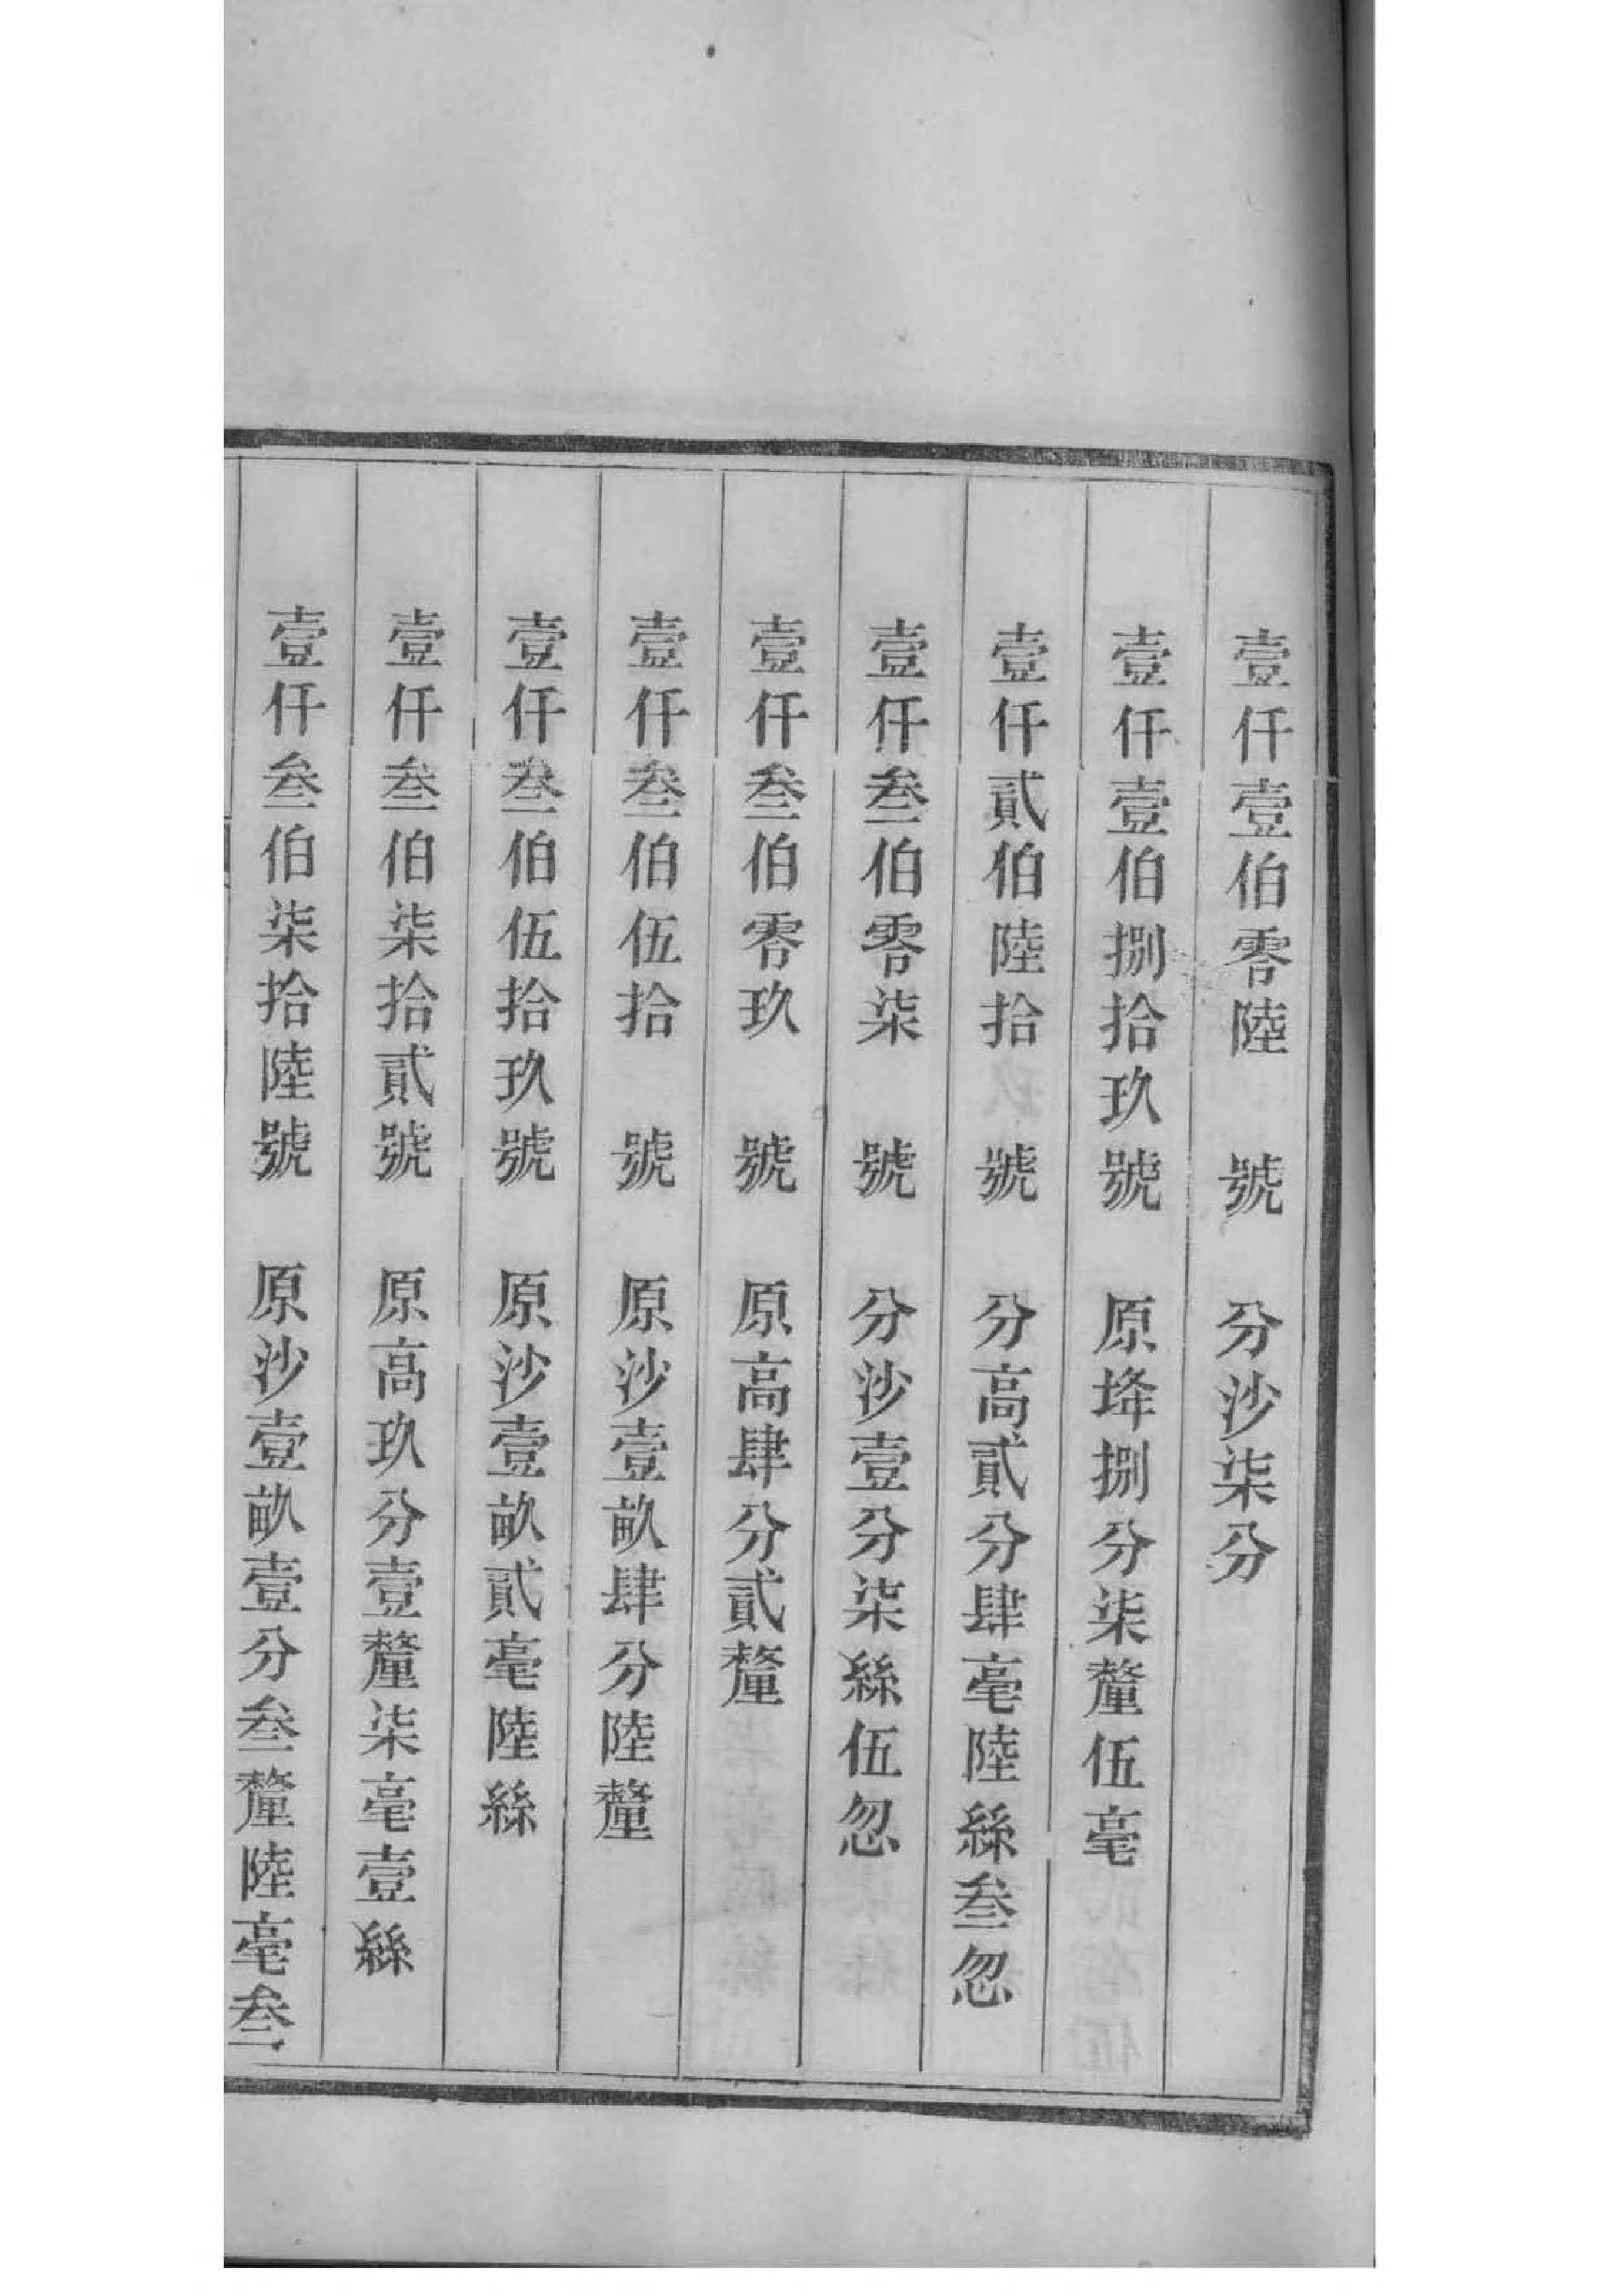 壹仟壹伯零陸　號　分沙柒分
壹仟壹伯捌拾玖號　原埄捌分柒釐伍毫
壹仟貳伯陸拾　號　分高貳分肆毫陸絲叁忽
壹仟叁伯零柒　號　分沙壹分柒絲伍忽
壹仟叁伯零玖　號　原高肆分貳釐
壹仟叁伯伍拾　號　原沙壹畝肆分陸釐
壹仟叁伯伍拾玖號　原沙壹畝貳毫陸絲
壹仟叁伯柒拾貳號　原高玖分壹釐柒毫壹絲
壹仟叁伯柒拾陸號　原沙壹畝壹分叁釐陸毫叁